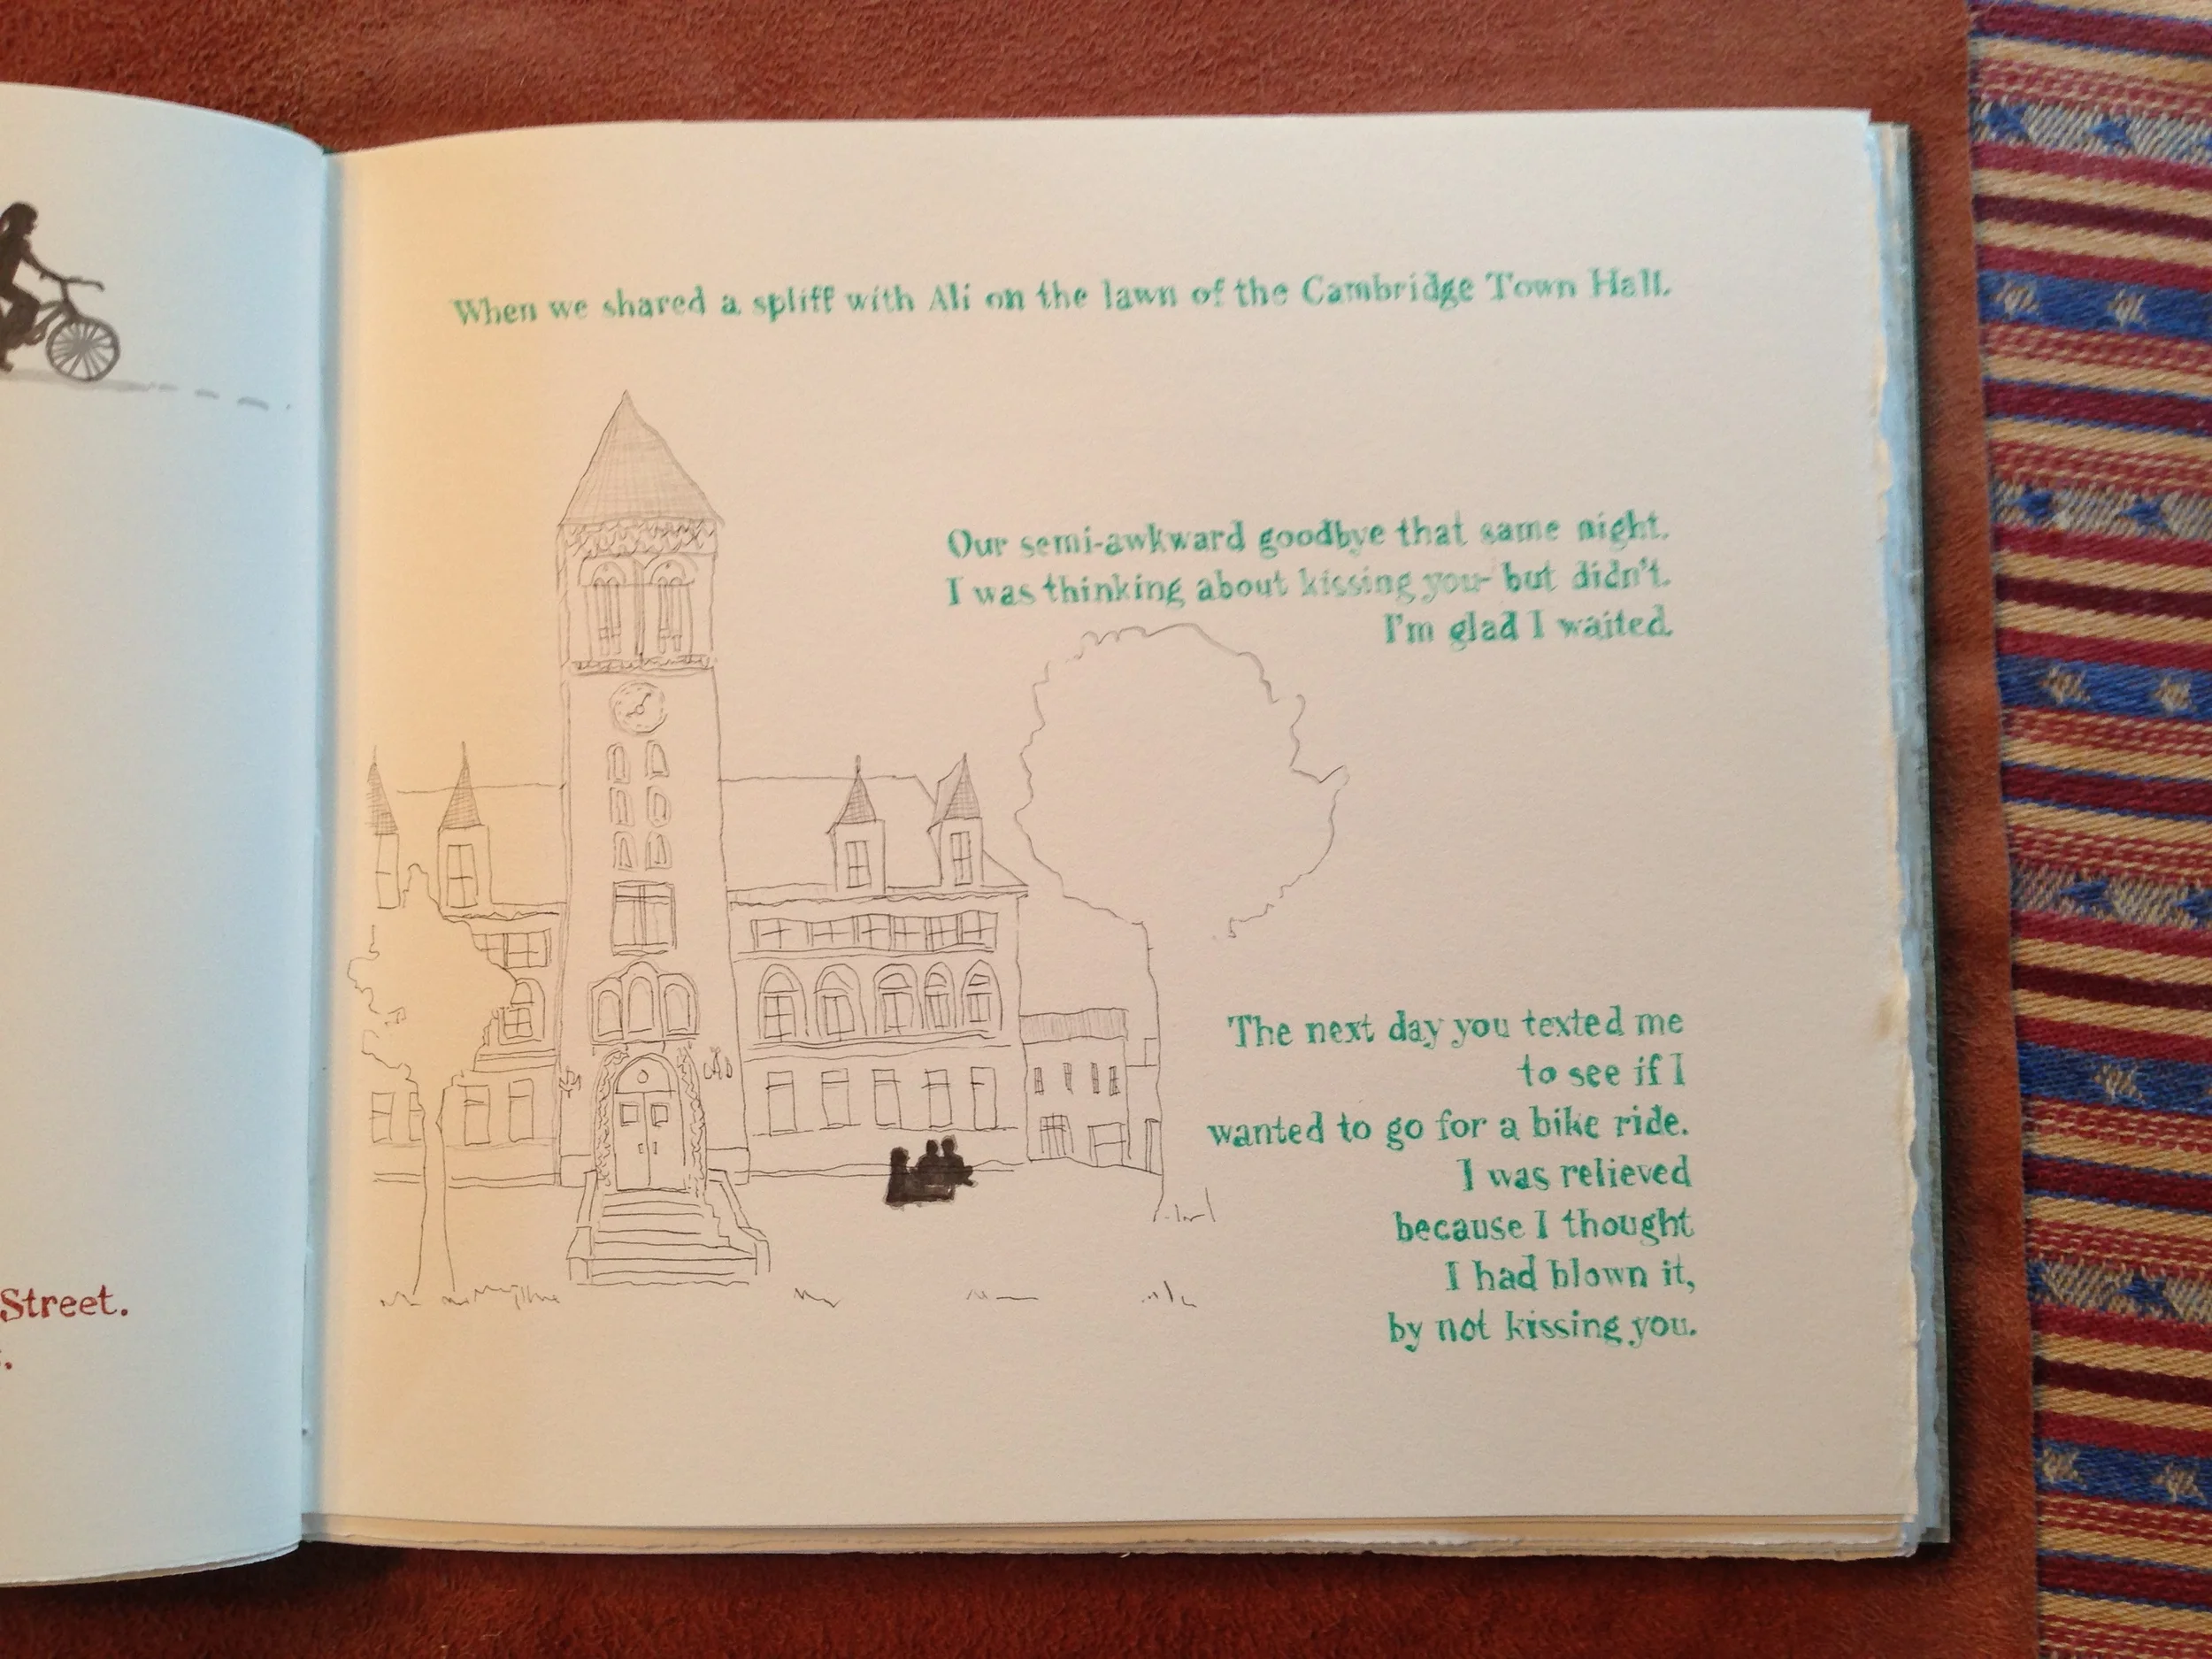 Street.
When we shared a spliff with Ali on the lawn of the Cambridge Town Hall.
Our semi-awkward goodbye that same night.
I was thinking about kissing you- but didn't.
I'm glad I waited.
The next day you texted me
to see if I
wanted to go for a bike ride.
I was relieved
because I thought
I had blown it,
by not kissing you.